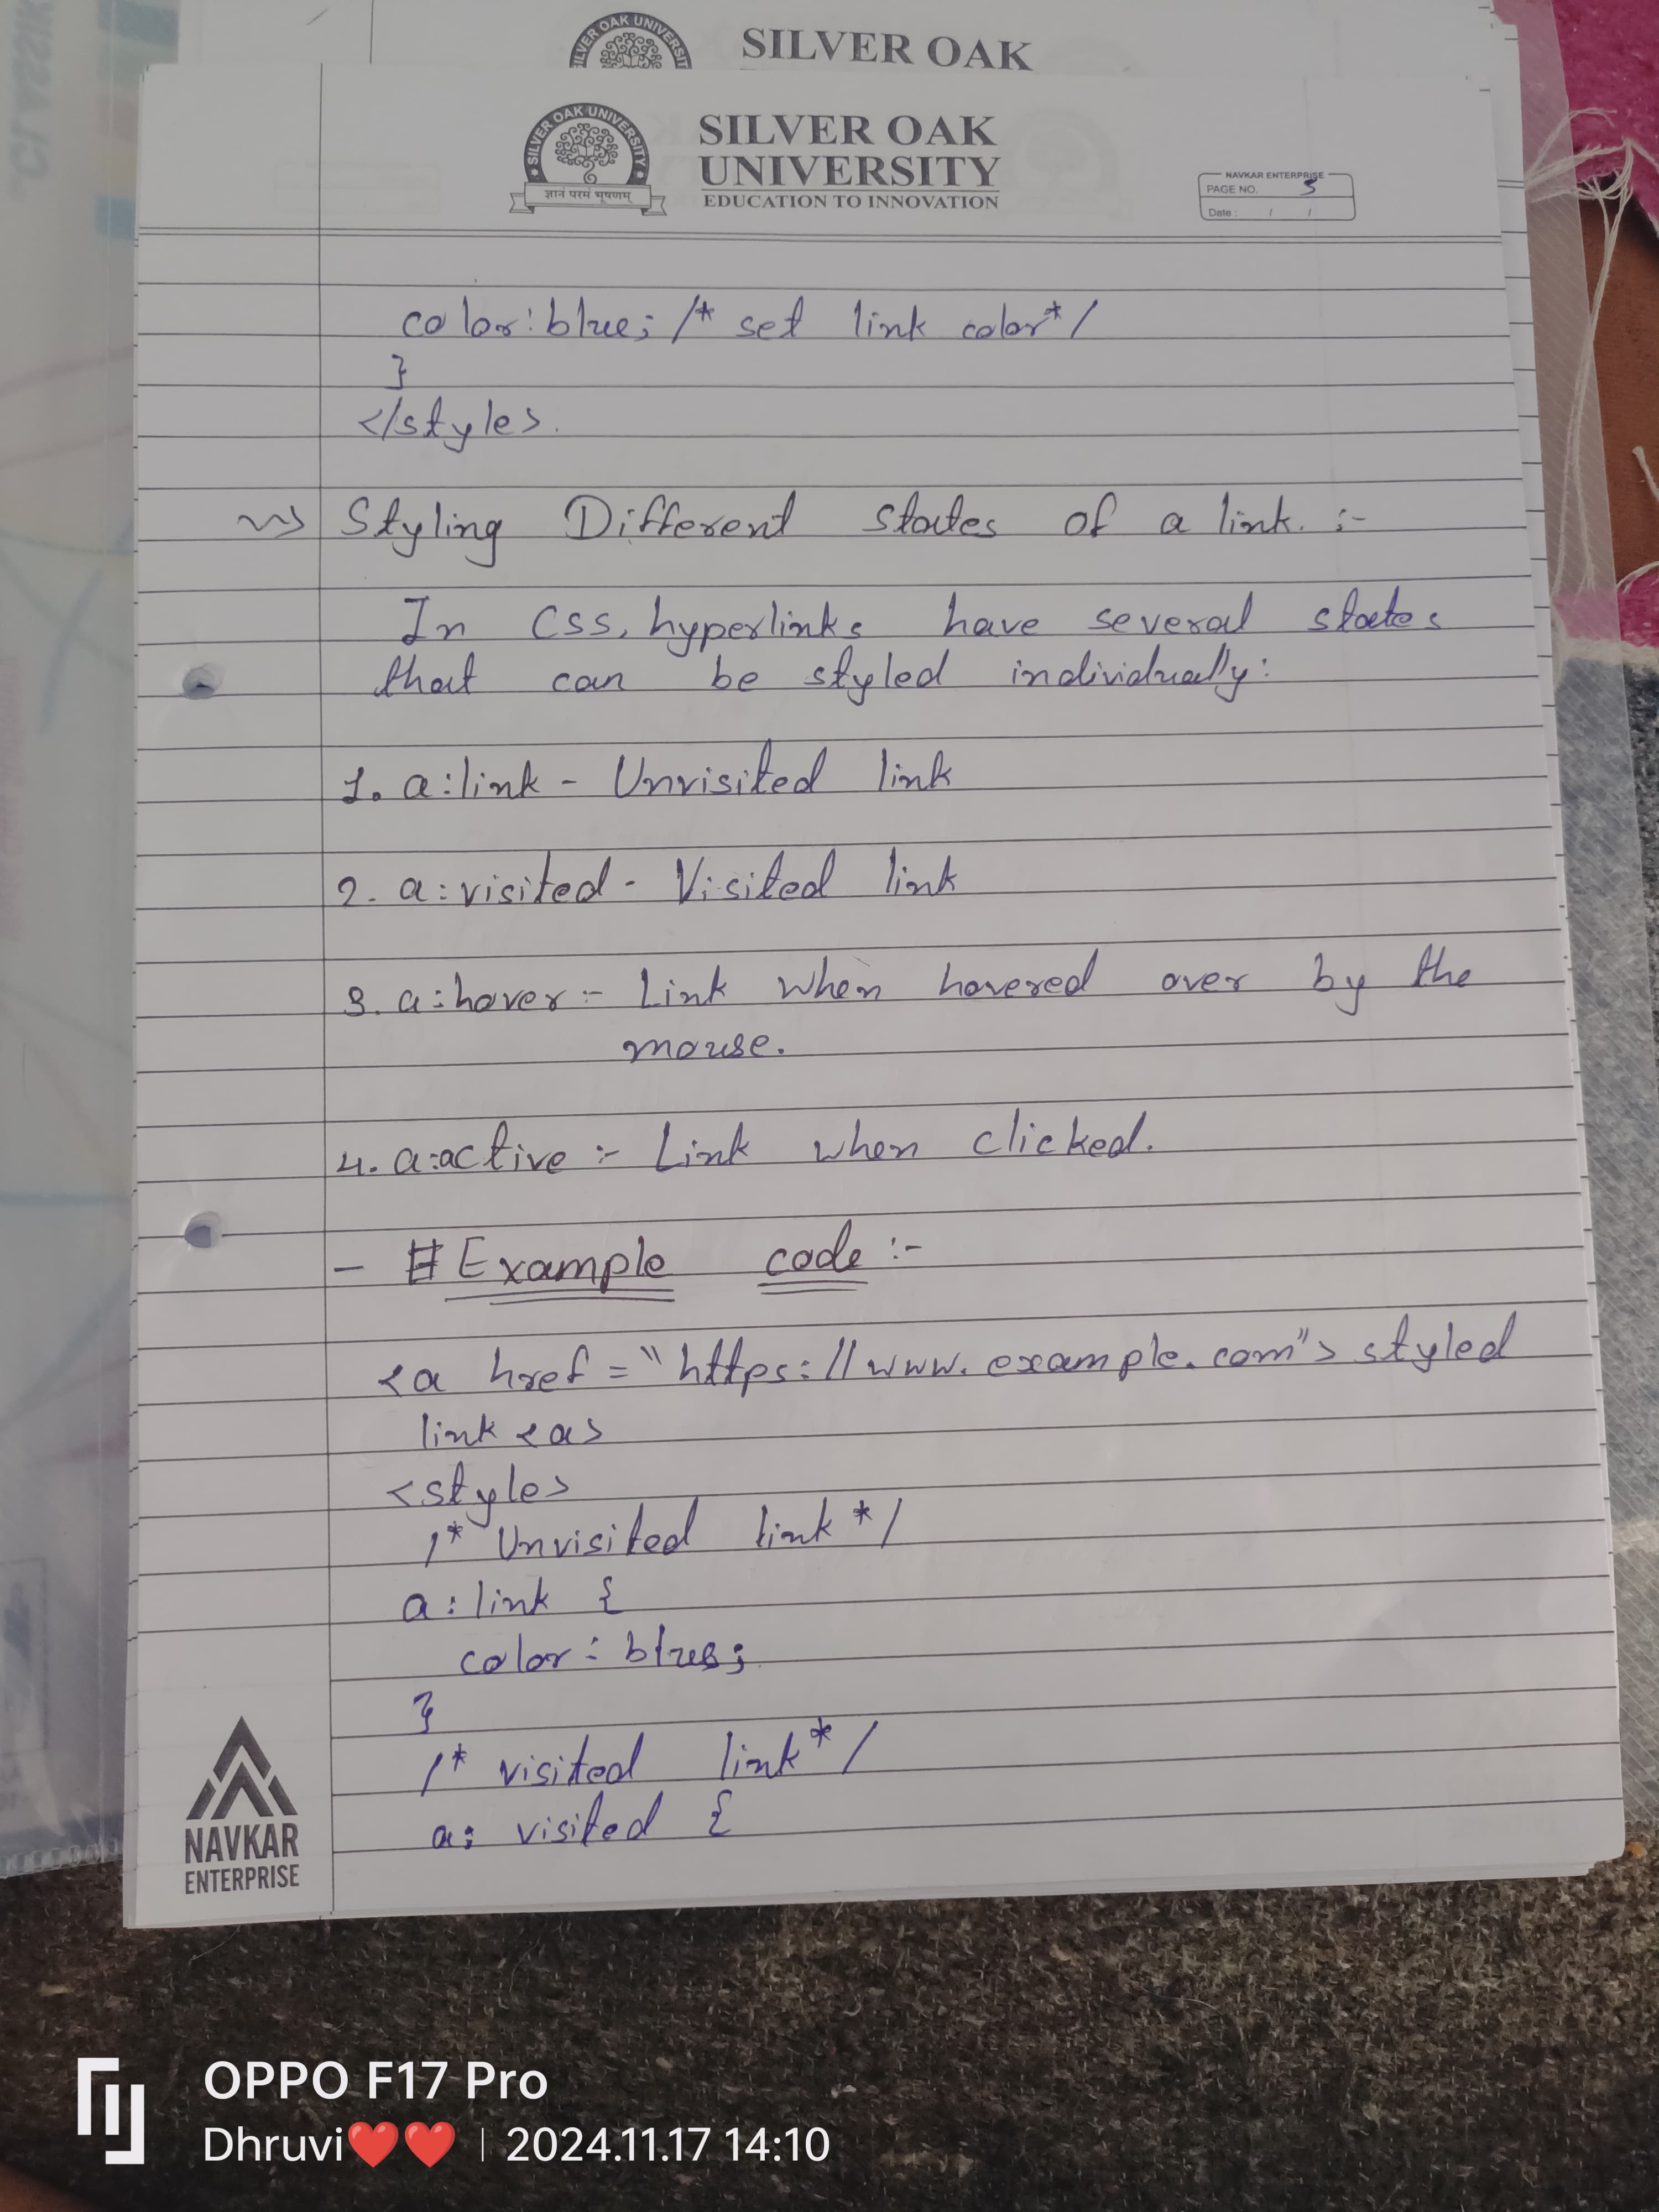 CLASSIK
SILVER OAK UNIVERSITY
SILVER OAK
SILVER OAK UNIVERSITY
ज्ञानं परमं भूषणम्
SILVER OAK
UNIVERSITY
EDUCATION TO INNOVATION
NAVKAR ENTERPRISE
PAGE NO. 5
Date : / /
color: blue; /* set link color */
}
</style>.
Styling Different states of a link. :-
In CSS, hyperlinks have several states
that can be styled individually:
1. a:link - Unvisited link
2. a:visited - Visited link
3. a:hover :- Link when hovered over by the
mouse.
4. a:active :- Link when clicked.
- # Example code :-
<a href = "https://www.example.com"> styled
link <a>
<style>
/* Unvisited link */
a: link {
color: blue;
}
/* visited link */
a: visited {
NAVKAR
ENTERPRISE
OPPO F17 Pro
Dhruvi❤️❤️ | 2024.11.17 14:10